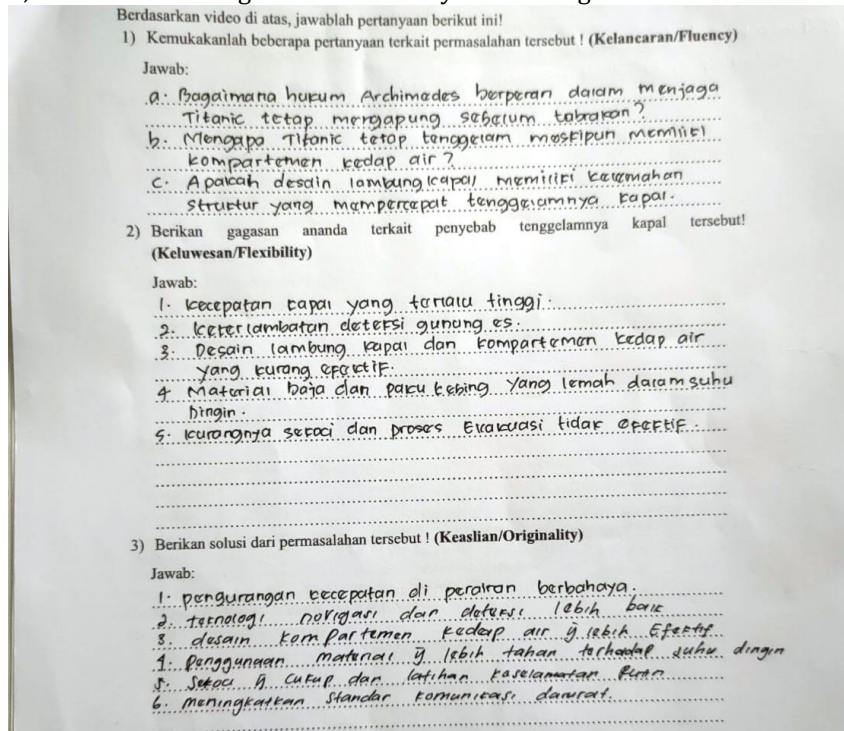 Berdasarkan video di atas, jawablah pertanyaan berikut ini!
1) Kemukakanlah beberapa pertanyaan terkait permasalahan tersebut ! (Kelancaran/Fluency)
Jawab:
a. Bagaimana hukum Archimedes berperan dalam menjaga
Titanic tetap mengapung sebelum tabrakan?
b. Mengapa Titanic tetap tenggelam meskipun memiliki
kompartemen kedap air?
c. Apakah desain lambung kapal memiliki kelemahan
struktur yang mempercepat tenggelamnya kapal.
2) Berikan gagasan ananda terkait penyebab tenggelamnya kapal tersebut!
(Keluwesan/Flexibility)
Jawab:
1. Kecepatan kapal yang terlalu tinggi.
2. Keterlambatan deteksi gunung es.
3. Desain lambung kapal dan kompartemen kedap air
yang kurang efektif.
4 Material baja dan paku keling yang lemah dalam suhu
Dingin.
5. Kurangnya sekoci dan proses Evakuasi tidak efektif.
3) Berikan solusi dari permasalahan tersebut ! (Keaslian/Originality)
Jawab:
1. pengurangan kecepatan di perairan berbahaya.
2. teknologi navigasi dan deteksi lebih baik
3. desain kompartemen kedap air yg lebih Efektif
4. Penggunaan material yg lebih tahan terhadap suhu dingin
5. Sekoci yg cukup dan latihan keselamatan
6. meningkatkan standar komunikasi darurat.